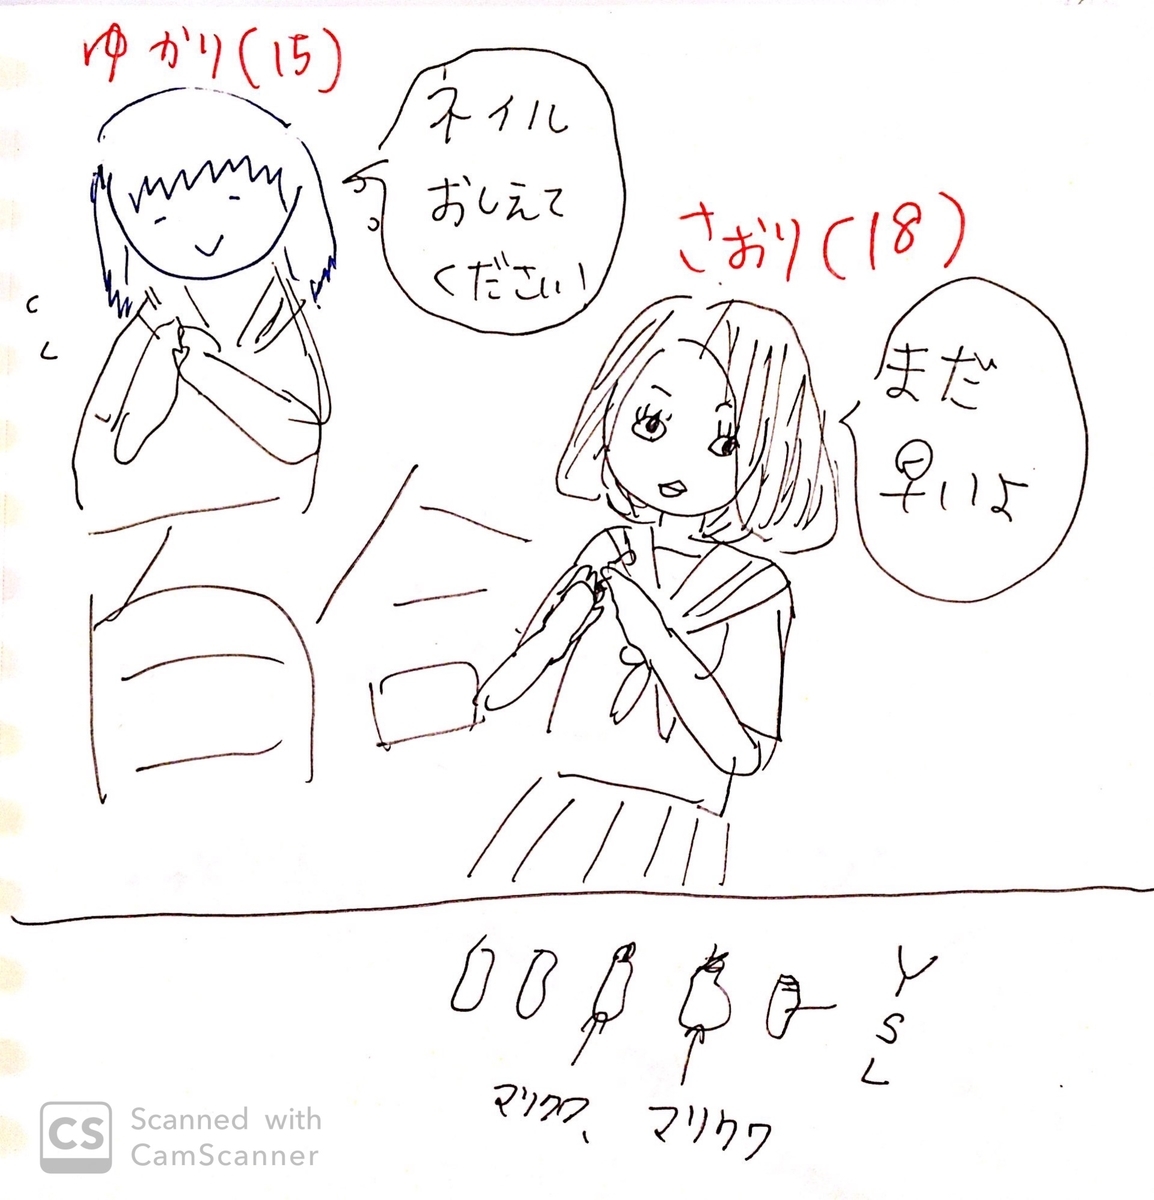 ゆかり(15)
ネイル
おしえて
ください
さおり(18)
まだ
早いよ
YSL
マリクワ、 マリクワ
CS
Scanned with
CamScanner